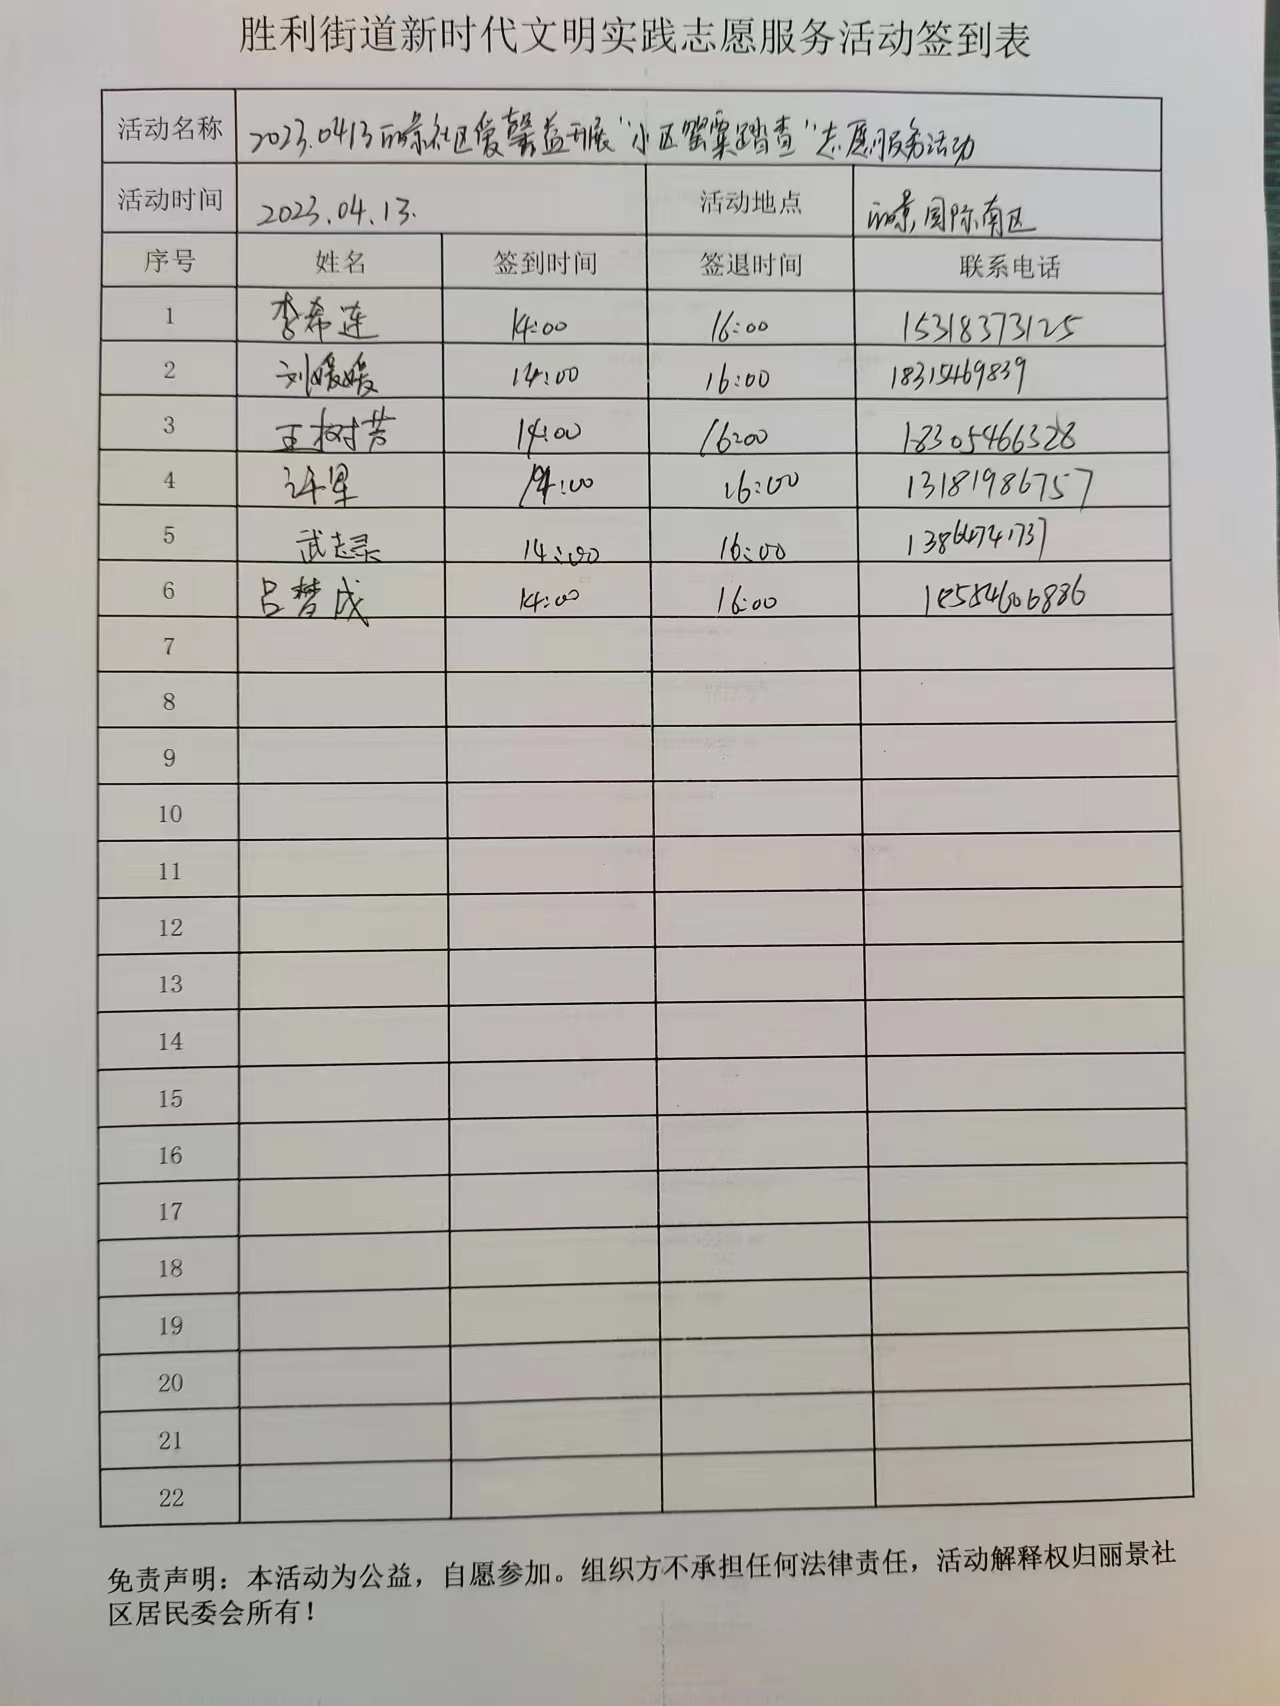 胜利街道新时代文明实践志愿服务活动签到表
活动名称 2023.0413丽景社区爱馨益开展“小区罂粟踏查”志愿服务活动
活动时间 2023.04.13. 活动地点 丽景国际南区
序号 姓名 签到时间 签退时间 联系电话
1 李希莲 14:00 16:00 15318373125
2 刘媛媛 14:00 16:00 18315469839
3 王树芳 14:00 16:00 18305466328
4 14:00 16:00 13181986757
5 武志录 14:00 16:00 13864741737
6 吕梦成 14:00 16:00 18554606886
7
8
9
10
11
12
13
14
15
16
17
18
19
20
21
22
免责声明：本活动为公益，自愿参加。组织方不承担任何法律责任，活动解释权归丽景社
区居民委会所有！